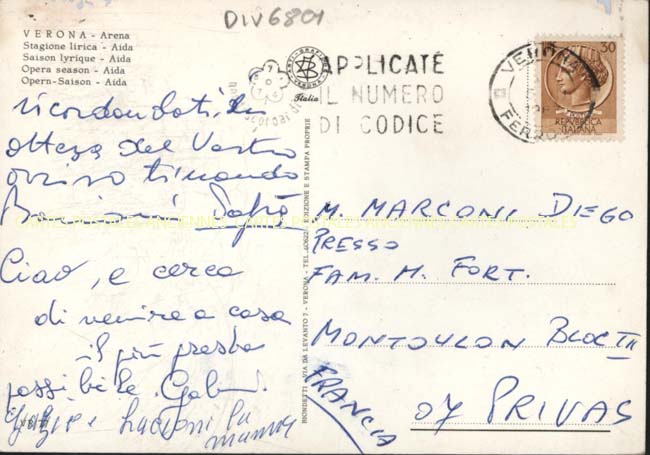 DIV6801
VERONA - Arena
Stagione lirica - Aida
Saison lyrique - Aida
Opera season - Aida
Opern-Saison - Aida
Italia
APPLICATE
IL NUMERO
DI CODICE
VERONA
FERROVIA
30
REPVBBLICA
ITALIANA
ricordandoti in
attesa del Vostro
arrivo ti mando
Papà
Ciao, e cerca
di venire a casa
il più presto
possibile.
e bacioni la
mamma
BIONDETTI - VIA DA LEVANTO 7 - VERONA - TEL. EDIZIONE E STAMPA PROPRIE
M. MARCONI DIEGO
PRESSO
FAM. M. FORT.
MONTOULON BLOC III
07 PRIVAS
FRANCIA